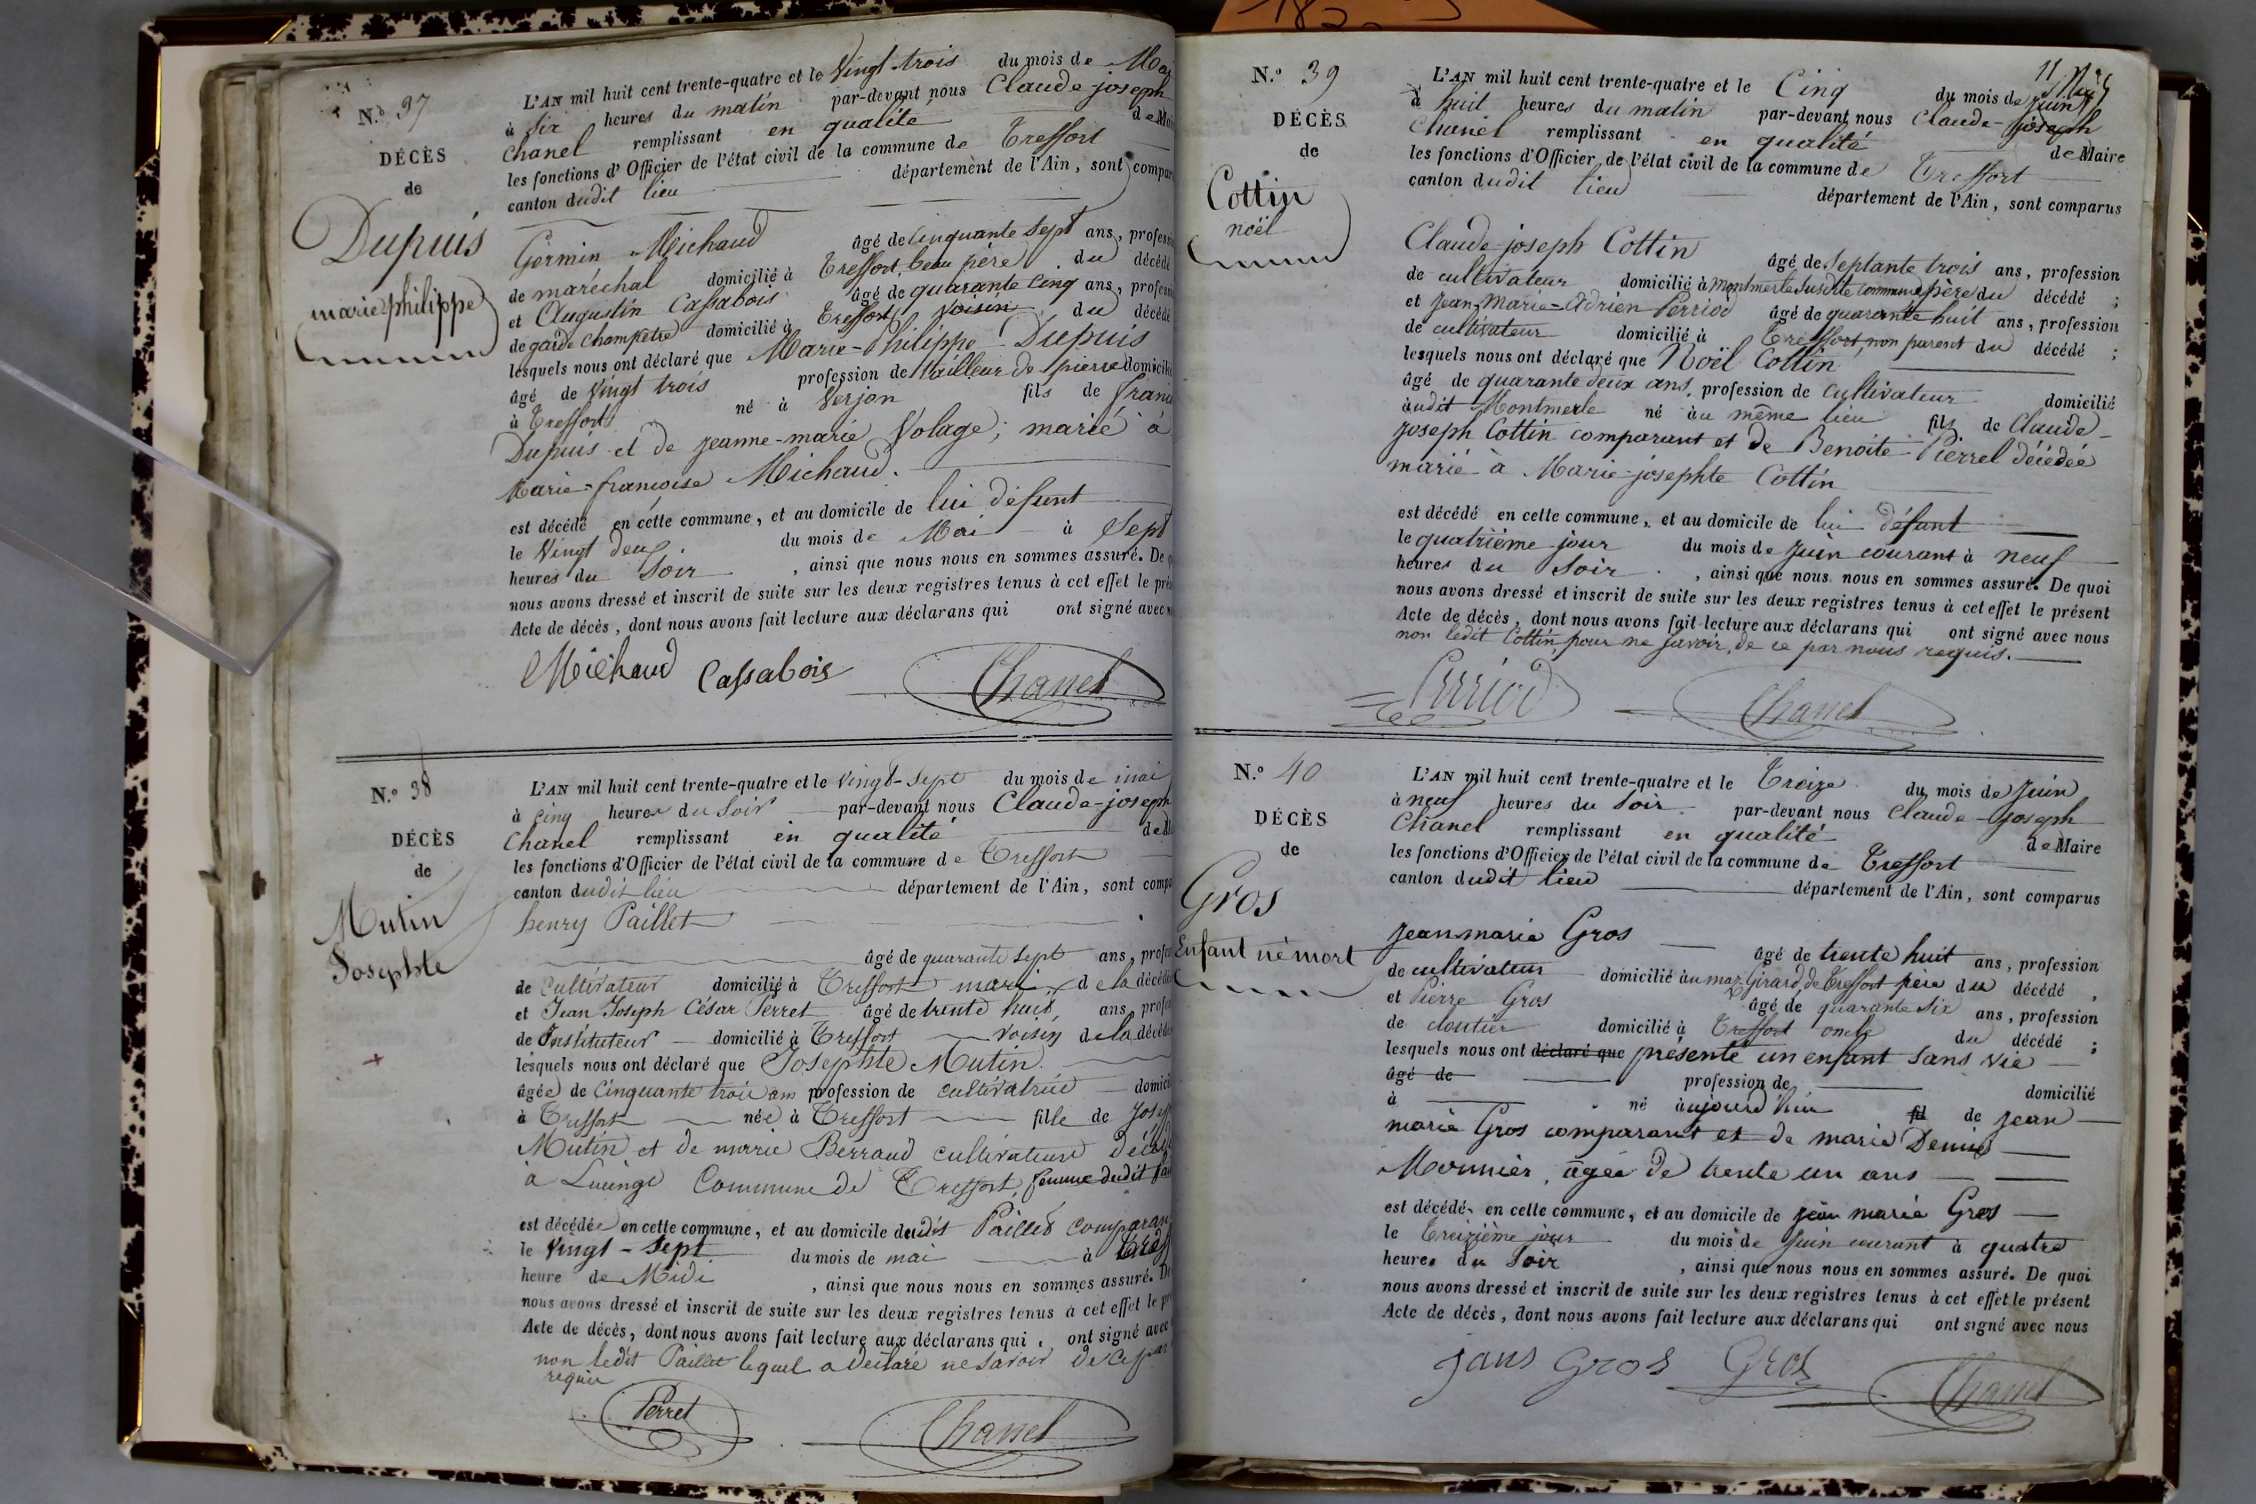 N.o 37
DÉCÈS
de
Dupuis
marie philippe
L'AN mil huit cent trente-quatre et le Vingt trois du mois de Mai
à six heures du matin par-devant nous Claude joseph
Chanel remplissant en qualité de Mai
les fonctions d'Officier de l'état civil de la commune de Treffort
canton dudit lieu département de l'Ain, sont compar
Germin Michaud âgé de cinquante sept ans, profession
de maréchal domicilié à Treffort, beau père du décédé
et Augustin Cassabois âgé de quarante cinq ans, profession
de garde champetre domicilié à Treffort, voisin du décédé
lesquels nous ont déclaré que Marie-Philippe Dupuis
âgé de Vingt trois profession de tailleur de pierre domicilié
à Treffort né à Verjon fils de franc
Dupuis et de jeanne-marie Volage; marié à
Marie-francoise Michaud.
est décédé en cette commune, et au domicile de lui défunt
le Vingt deux du mois de Mai à Sept
heures du Soir, ainsi que nous nous en sommes assuré. De q
nous avons dressé et inscrit de suite sur les deux registres tenus à cet effet le prés
Acte de décès, dont nous avons fait lecture aux déclarans qui ont signé avec n
Michaud Cassabois Chanel
N.o 38
DÉCÈS
de
Mutin
Josephte
L'AN mil huit cent trente-quatre et le vingt-sept du mois de mai
à cinq heures du Soir par-devant nous Claude-joseph
Chanel remplissant en qualité de M
les fonctions d'Officier de l'état civil de la commune de Treffort
canton dudit lieu département de l'Ain, sont compa
henry Paillet
âgé de quarante sept ans, profes
de Cultivateur domicilié à Treffort mari de la décédée
et Jean Joseph César Perret âgé de trente huit ans, profes
de Instituteur domicilié à Treffort voisin de la décédée
lesquels nous ont déclaré que Josephte Mutin
âgée de Cinquante trois ans profession de cultivatrice domicil
à Treffort née à Treffort fille de Josep
Mutin et de marie Berraud cultivateurs décédés
à Lucinge Commune de Treffort, femme dudit Pail
est décédée en cette commune, et au domicile dudit Paillet comparan
le Vingt-sept du mois de mai à
heure de Midi, ainsi que nous nous en sommes assuré. De
nous avons dressé et inscrit de suite sur les deux registres tenus à cet effet le pr
Acte de décès, dont nous avons fait lecture aux déclarans qui ont signé avec
non ledit Paillet lequel a déclaré ne savoir de ce par
requis
Perret Chanel
N.o 39
DÉCÈS
de
Cottin
noël
L'AN mil huit cent trente-quatre et le Cinq du mois de juin
à huit heures du matin par-devant nous Claude-joseph
Chanel remplissant en qualité de Maire
les fonctions d'Officier de l'état civil de la commune de Treffort
canton dudit lieu département de l'Ain, sont comparus
Claude-joseph Cottin âgé de Septante trois ans, profession
de cultivateur domicilié à Montmerle susdite commune père du décédé;
et jean-marie-Adrien Perriod âgé de quarante huit ans, profession
de cultivateur domicilié à Treffort, non parent du décédé;
lesquels nous ont déclaré que Noël Cottin
âgé de quarante deux ans, profession de Cultivateur domicilié
audit Montmerle né au même lieu fils de Claude-
joseph Cottin comparant et de Benoite Pierrel décédée
marié à Marie-josephte Cottin
est décédé en cette commune, et au domicile de lui défunt
le quatrième jour du mois de juin courant à neuf
heures du Soir, ainsi que nous nous en sommes assuré. De quoi
nous avons dressé et inscrit de suite sur les deux registres tenus à cet effet le présent
Acte de décès, dont nous avons fait lecture aux déclarans qui ont signé avec nous
non ledit Cottin pour ne savoir, de ce par nous requis.
Perriod Chanel
N.o 40
DÉCÈS
de
Gros
Enfant né mort
L'AN mil huit cent trente-quatre et le Treize du mois de juin
à neuf heures du Soir par-devant nous Claude-joseph
Chanel remplissant en qualité de Maire
les fonctions d'Officier de l'état civil de la commune de Treffort
canton dudit lieu département de l'Ain, sont comparus
jean marie Gros âgé de trente huit ans, profession
de cultivateur domicilié au maz Girard, de Treffort père du décédé,
et Pierre Gros âgé de quarante six ans, profession
de cloutier domicilié à Treffort oncle du décédé;
lesquels nous ont déclaré que présenté un enfant sans vie
âgé de profession de domicilié
à né aujourd'hui fil de jean
marie Gros comparant et de marie Denise
Mounier, âgée de trente un ans
est décédé en cette commune, et au domicile de jean marie Gros
le Treizième jour du mois de juin courant à quatre
heures du Soir, ainsi que nous nous en sommes assuré. De quoi
nous avons dressé et inscrit de suite sur les deux registres tenus à cet effet le présent
Acte de décès, dont nous avons fait lecture aux déclarans qui ont signé avec nous
jans Gros Gros Chanel